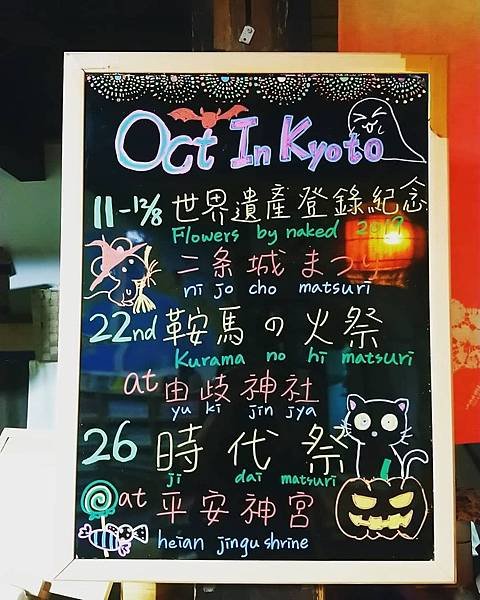 Oct In Kyoto
11-12/8 世界遺産登録紀念
Flowers by naked 2019
二条城まつり
ni jo cho matsuri
22nd 鞍馬の火祭
Kurama no hi matsuri
at 由岐神社
yu ki jin jya
26 時代祭
ji dai matsuri
at 平安神宮
heian jingu shrine